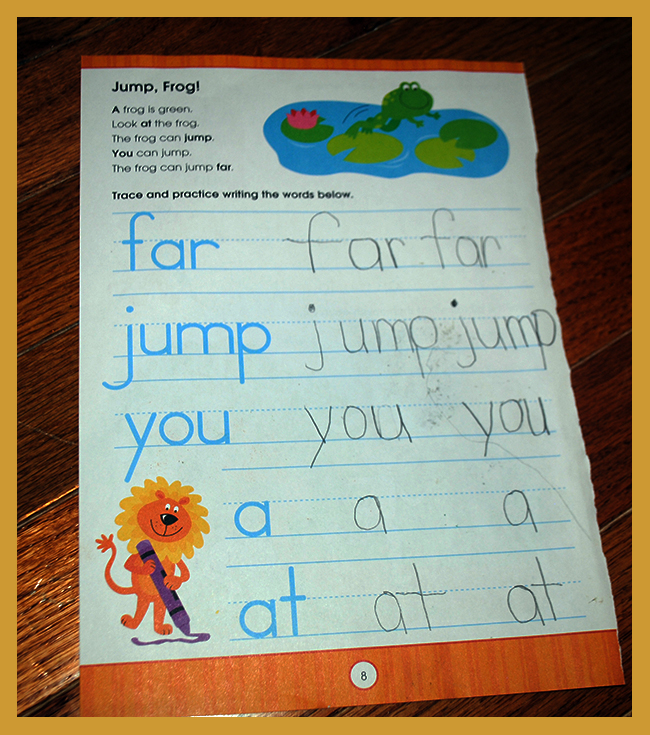 Jump, Frog!
A frog is green.
Look at the frog.
The frog can jump.
You can jump.
The frog can jump far.
Trace and practice writing the words below.
far far far
jump jump jump
you you you
a a a
at at at
8